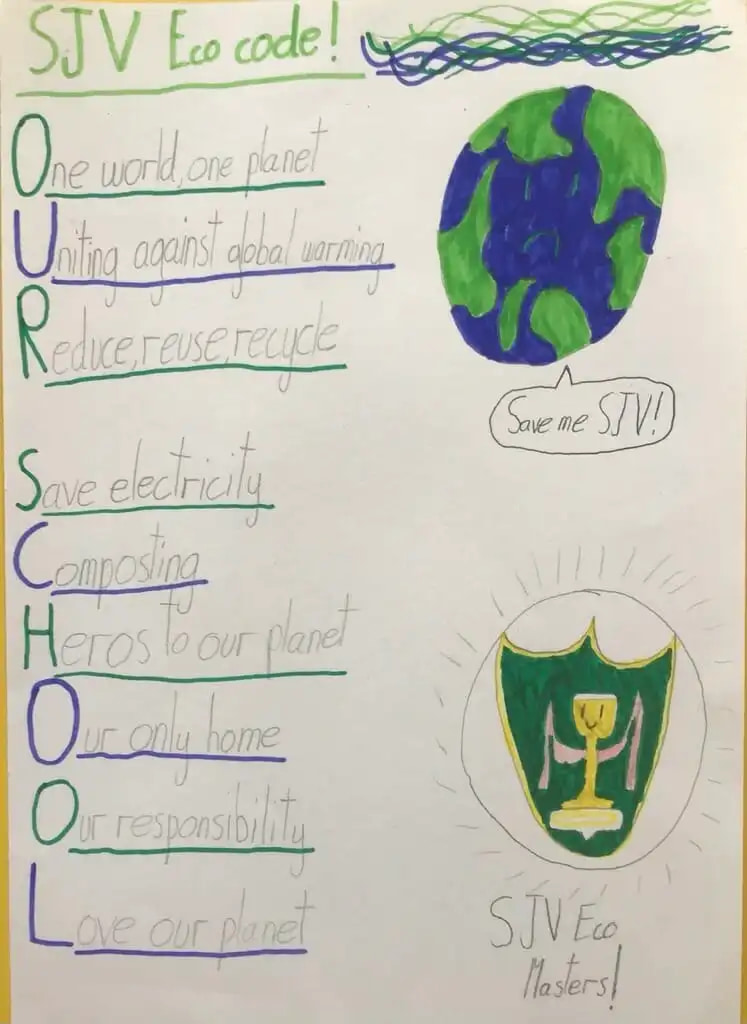 SJV Eco code!
One world, one planet
Uniting against global warming
Reduce, reuse, recycle
Save me SJV!
Save electricity
Composting
Heros to our planet
Our only home
Our responsibility
Love our planet
SJV Eco
Masters!